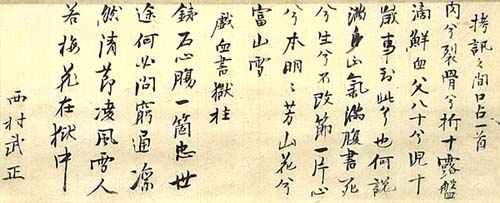 拷訊之間口占一首
肉兮裂骨兮折十露盤
滴鮮血父八十兮児十
歳事到此了也何説
氣滿腹書死
兮生兮不改節一片心
兮本明々芳山花兮
富山雪
戯血書獄柱
鉄石心腸一箇忠世
途何必問窮通凛
然清節凌風雪人
若梅花在獄中
西村武正